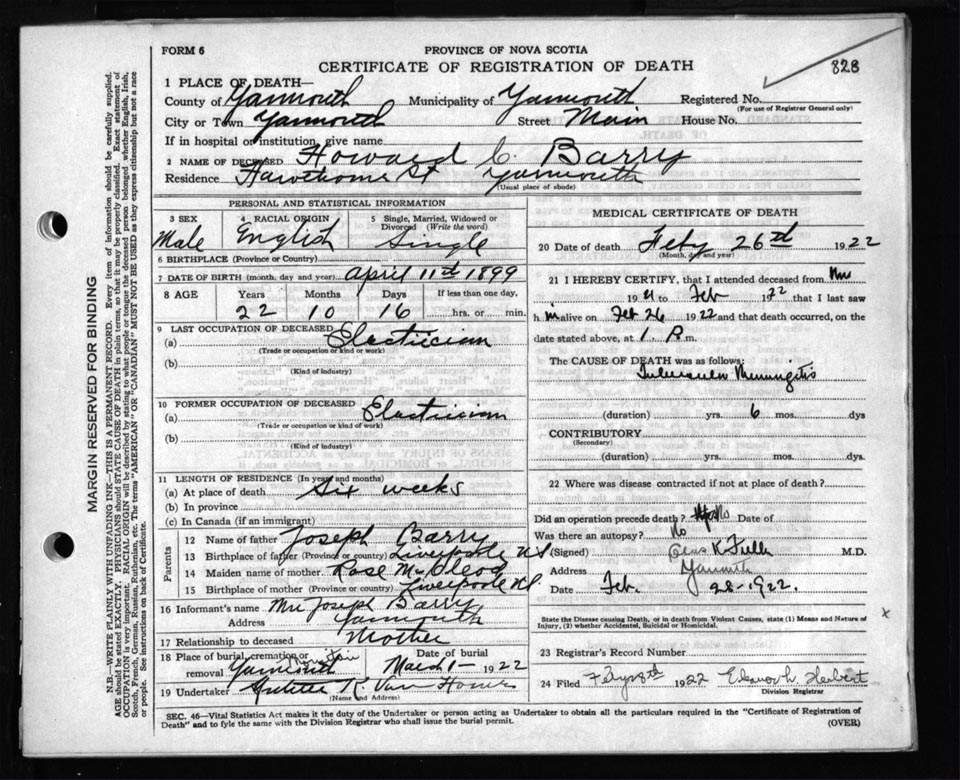 FORM 6
PROVINCE OF NOVA SCOTIA
CERTIFICATE OF REGISTRATION OF DEATH
828
1 PLACE OF DEATH—
County of Yarmouth Municipality of Yarmouth Registered No.
(For use of Registrar General only)
City or Town Yarmouth Street Main House No.
If in hospital or institution, give name
2 NAME OF DECEASED Howard C. Barry
Residence Hawthorne St Yarmouth
(Usual place of abode)
PERSONAL AND STATISTICAL INFORMATION
3 SEX Male
4 RACIAL ORIGIN English
5 Single, Married, Widowed or Divorced (Write the word) Single
6 BIRTHPLACE (Province or Country)
7 DATE OF BIRTH (month, day and year) April 11th 1899
8 AGE Years Months Days If less than one day,
22 10 16 hrs. or min.
9 LAST OCCUPATION OF DECEASED
(a) Electrician
(Trade or occupation or kind or work)
(b)
(Kind of industry)
10 FORMER OCCUPATION OF DECEASED
(a) Electrician
(Trade or occupation or kind of work)
(b)
(Kind of industry)
11 LENGTH OF RESIDENCE (In years and months)
(a) At place of death Six weeks
(b) In province
(c) In Canada (if an immigrant)
Parents
12 Name of father Joseph Barry
13 Birthplace of father (Province or country) Liverpoole NS
14 Maiden name of mother Rose McCleod
15 Birthplace of mother (Province or country) Liverpoole NS
16 Informant's name Mrs Joseph Barry
Address Yarmouth
17 Relationship to deceased Mother
18 Place of burial, cremation or removal Yarmouth
Date of burial March 1 - 1922
19 Undertaker R. Van Horne
(Name and Address)
MEDICAL CERTIFICATE OF DEATH
20 Date of death Feby 26th 1922
(Month, day and year)
21 I HEREBY CERTIFY, that I attended deceased from Nov
1921 to Feb 1922 that I last saw
him alive on Feb 26 1922 and that death occurred, on
date stated above, at 1 P m.
The CAUSE OF DEATH was as follows:
Tubercular Meningitis
(duration) yrs. 6 mos. dys
CONTRIBUTORY
(Secondary)
(duration) yrs. mos. dys.
22 Where was disease contracted if not at place of death?
Did an operation precede death? No Date of
Was there an autopsy? No
(Signed) K Fuller M.D.
Address Yarmouth
Date Feb. 28 - 1922.
State the Disease causing Death, or in death from Violent Causes, state (1) Means and Nature of
Injury, (2) whether Accidental, Suicidal or Homicidal.
x
23 Registrar's Record Number
24 Filed 1922 Eleanor L. Herbert
Division Registrar
SEC. 46—Vital Statistics Act makes it the duty of the Undertaker or person acting as Undertaker to obtain all the particulars required in the "Certificate of Registration of
Death" and to fyle the same with the Division Registrar who shall issue the burial permit.
(OVER)
MARGIN RESERVED FOR BINDING
N.B.—WRITE PLAINLY WITH UNFADING INK—THIS IS A PERMANENT RECORD. Every item of information should be carefully supplied.
AGE should be stated EXACTLY. PHYSICIANS should STATE CAUSE OF DEATH in plain terms, so that it may be properly classified. Exact statement of
OCCUPATION is very important. RACIAL ORIGIN will be described by stating to what people or tongue the deceased person belonged whether English, Irish,
Scotch, French, German, Russian, Ruthenian, etc. The terms "AMERICAN" OR "CANADIAN" MUST NOT BE USED as they express citizenship but not a race
or people. See instructions on back of Certificate.